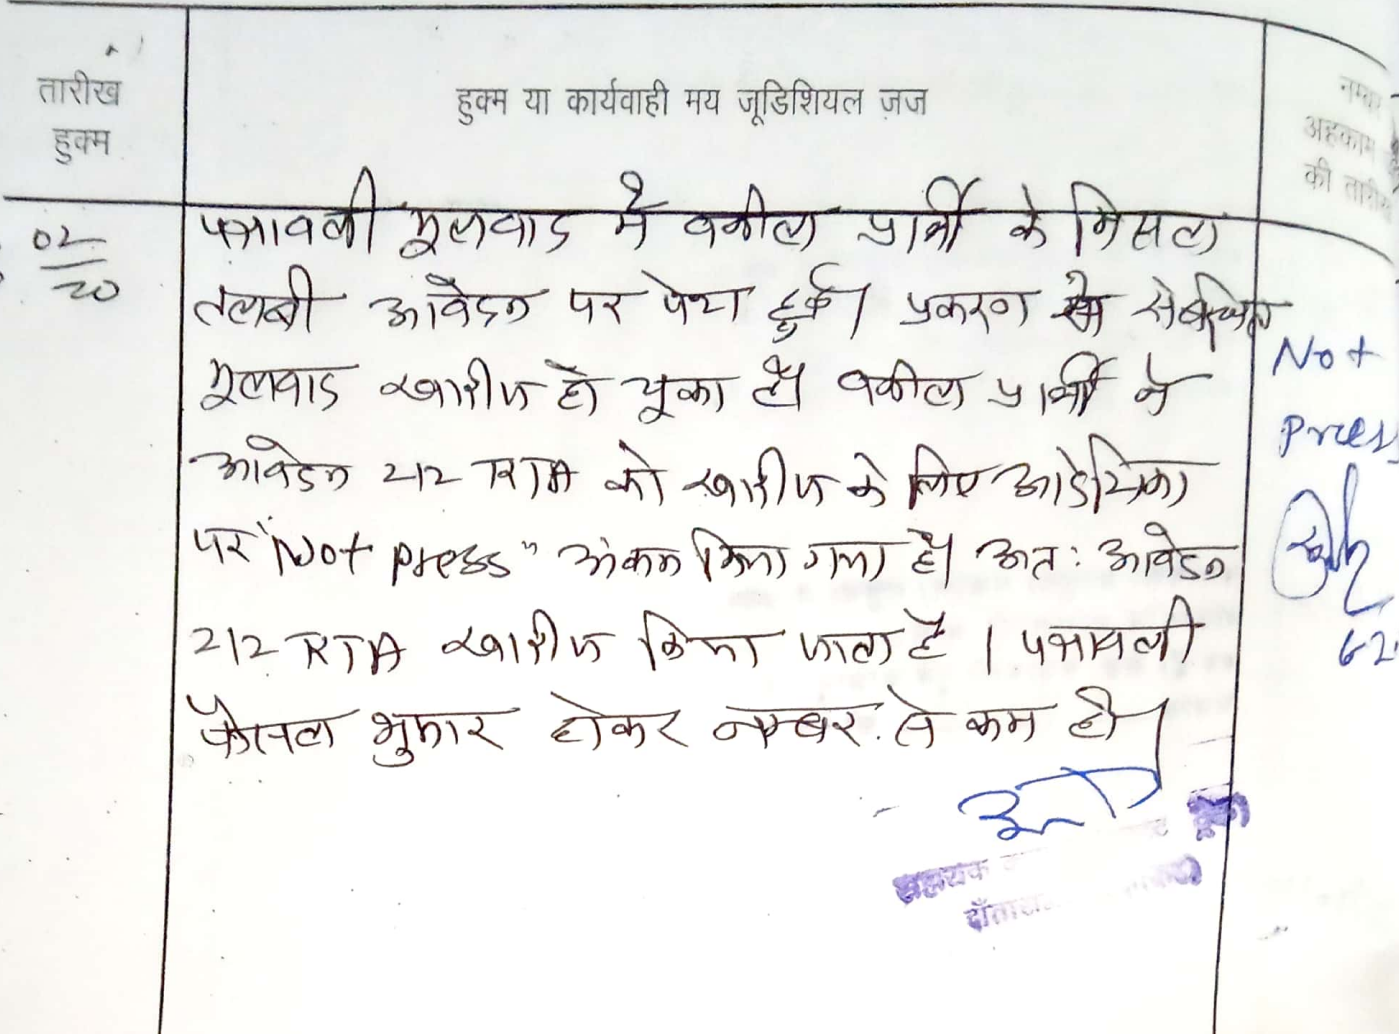 तारीख
हुक्म
हुक्म या कार्यवाही मय जूडिशियल ज़ज
नम्बर
अहकाम
की तारीख
02
20
पत्रावली मूलवाद में वकील प्रार्थी के मिसल
तलबी आवेदन पर पेश हुई। प्रकरण से संबंधित
मूलवाद खारीज हो चूका है। वकील प्रार्थी ने
आवेदन 212 RTA को खारीज के लिए आदेशिका
पर "Not press" अंकन किया गया है। अतः आवेदन
212 RTA खारीज किया जाता है । पत्रावली
फैसल शुमार होकर नम्बर से कम हो।
Not
press
62
सहायक